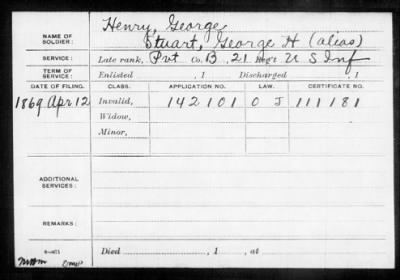 Henry, George
NAME OF SOLDIER: Stuart, George H (alias)
SERVICE: Late rank, Pvt Co. B, 21 Reg't U S Inf
TERM OF SERVICE: Enlisted , 1 Discharged , 1
DATE OF FILING. CLASS. APPLICATION NO. LAW. CERTIFICATE NO.
1869 Apr 12 Invalid, 142101 O J 111181
Widow,
Minor,
ADDITIONAL SERVICES:
REMARKS:
Died , 1 , at